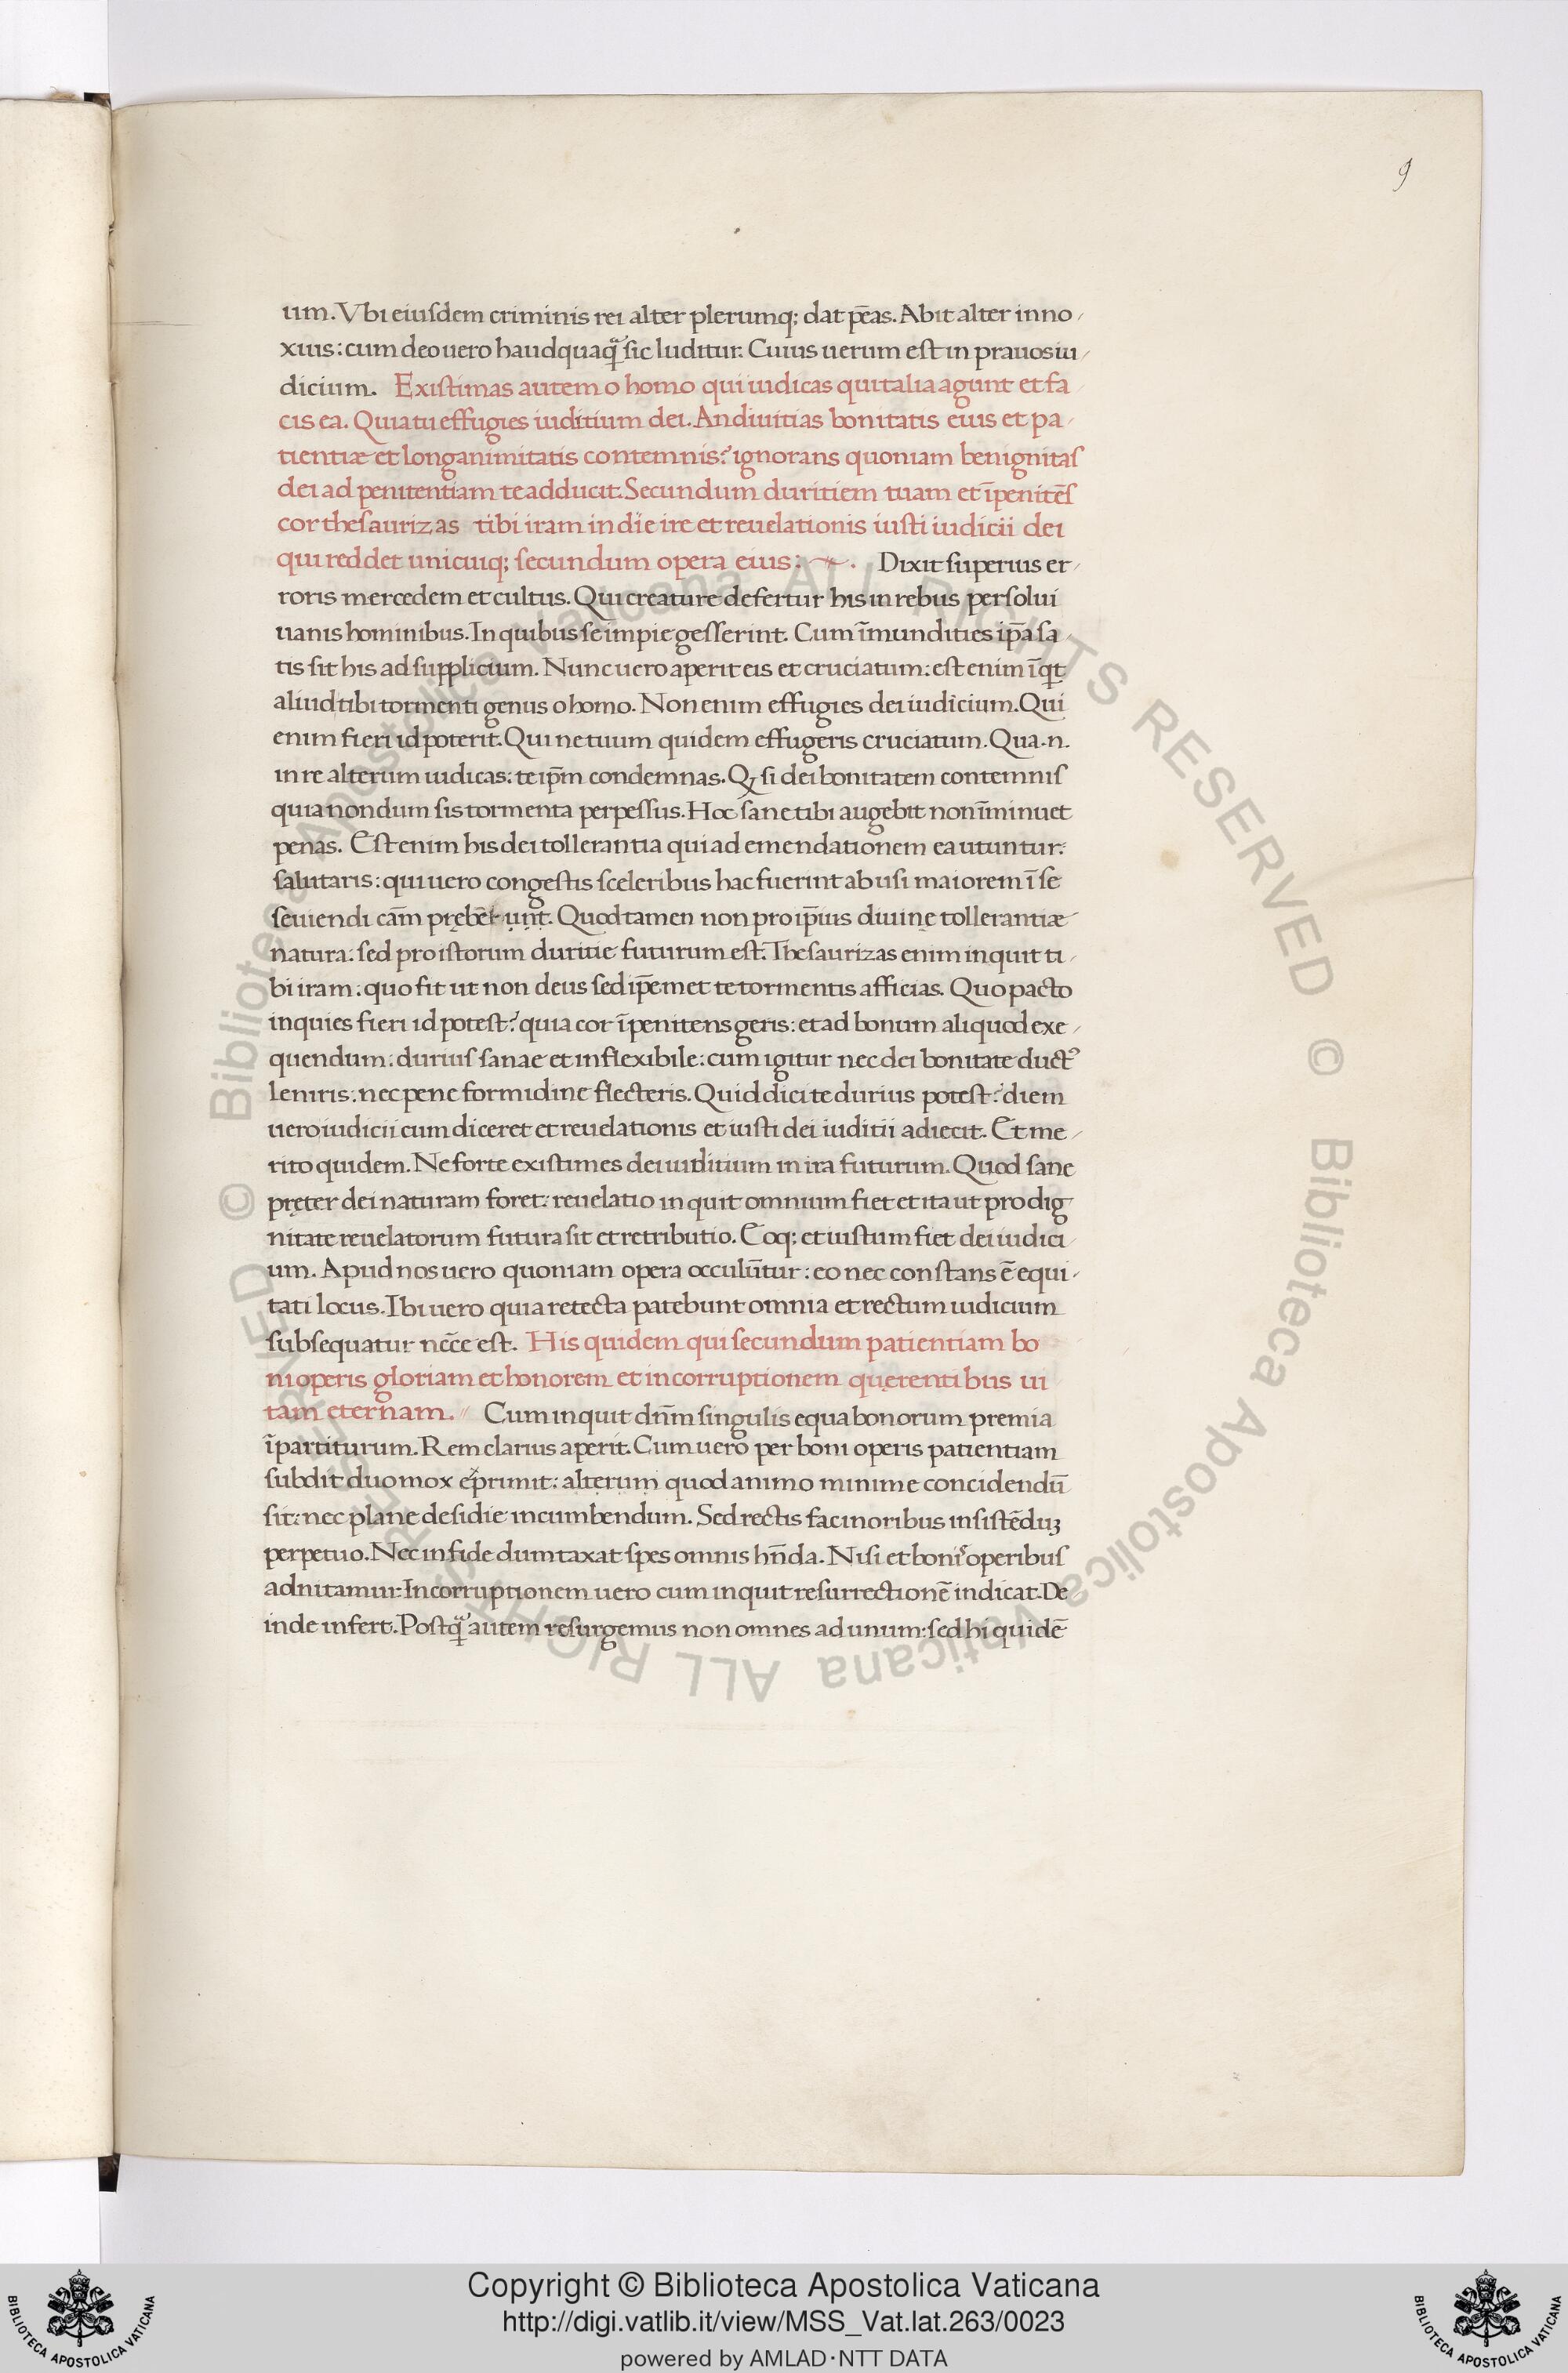 9
um. Vbi eiusdem criminis rei alter plerumq; dat pēas. Abit alter inno-
xius: cum deo uero haudquaq̄ sic luditur. Cuius uerum est in prauos iu-
dicium. Existimas autem o homo qui iudicas qui talia agunt et fa-
cis ea. Quia tu effugies iuditium dei. An diuitias bonitatis eius et pa-
tientiæ et longanimitatis contemnis? ignorans quoniam benignitas
dei ad penitentiam te adducit. Secundum duritiem tuam et īpenitēs
cor thesaurizas tibi iram in die ire et reuelationis iusti iudicii dei
qui reddet unicuiq; secundum opera eius: Dixit superius er-
roris mercedem et cultus. Qui creature defertur his in rebus persolui
uanis hominibus. In quibus se impie gesserint. Cum īmundities ip̄a sa-
tis sit his ad supplicium. Nunc uero aperit eis et cruciatum: est enim īq̄t
aliud tibi tormenti genus o homo. Non enim effugies dei iudicium. Qui
enim fieri id poterit. Qui ne tuum quidem effugeris cruciatum. Qua .n.
in re alterum iudicas: te ip̄m condemnas. Q si dei bonitatem contemnis
quia nondum sis tormenta perpessus. Hoc sane tibi augebit non īminuet
penas. Est enim his dei tollerantia qui ad emendationem ea utuntur:
salutaris: qui uero congestis sceleribus hac fuerint abusi maiorem ī se
seuiendi cām prębēt unt. Quod tamen non pro ip̄ius diuinę tollerantiæ
natura: sed pro istorum duritie futurum est. Thesaurizas enim inquit ti-
bi iram: quo fit ut non deus sed ip̄emet te tormentis afficias. Quo pacto
inquies fieri id potest? quia cor īpenitens geris: et ad bonum aliquod exe-
quendum: durius sanae et inflexibile: cum igitur nec dei bonitate duct9
leniris: nec pene formidine flecteris. Quid dici te durius potest? diem
uero iudicii cum diceret et reuelationis et iusti dei iuditii adiecit. Et me-
rito quidem. Ne forte existimes dei iuditium in ira futurum. Quod sane
pręter dei naturam foret: reuelatio inquit omnium fiet et ita ut pro dig
nitate reuelatorum futura sit et retributio. Eoq; et iustum fiet dei iudici-
um. Apud nos uero quoniam opera occulūtur: eo nec constans ē equi-
tati locus. Ibi uero quia retecta patebunt omnia et rectum iudicium
subsequatur nēce est. His quidem qui secundum patientiam bo
ni operis gloriam et honorem et incorruptionem quęrentibus ui
tam eternam. Cum inquit dn̄m singulis equa bonorum premia
īpartiturum. Rem clarius aperit. Cum uero per boni operis patientiam
subdit duo mox exprimit: alterum quod animo minime concidendū
sit: nec plane desidie incumbendum. Sed rectis facinoribus insistēduꝫ
perpetuo. Nec in fide dumtaxat spes omnis hn̄da. Nisi et bonis operibus
adnitamur: Incorruptionem uero cum inquit resurrectionē indicat. De
inde infert. Postq̄ autem resurgemus non omnes ad unum: sed hi quidē
© Biblioteca Apostolica Vaticana ALL RIGHTS RESERVED © Biblioteca Apostolica Vaticana ALL RIGHTS RESERVED
Copyright © Biblioteca Apostolica Vaticana
http://digi.vatlib.it/view/MSS_Vat.lat.263/0023
powered by AMLAD·NTT DATA
BIBLIOTECA APOSTOLICA VATICANA
BIBLIOTECA APOSTOLICA VATICANA